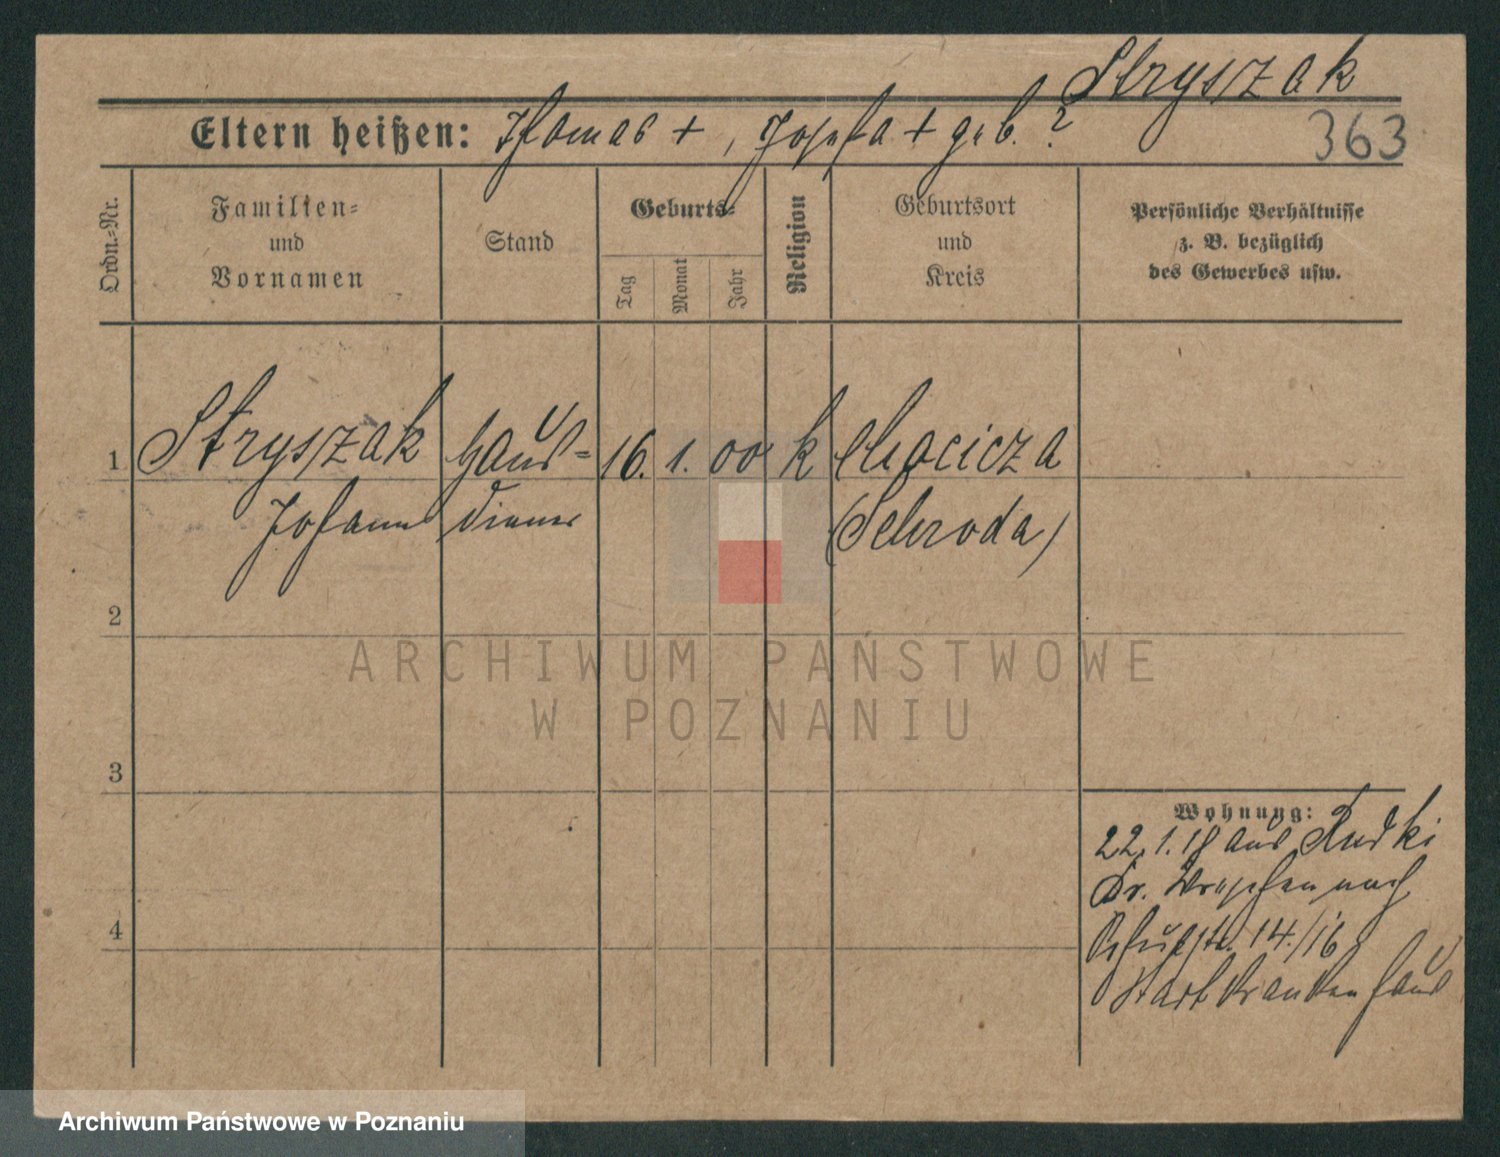 Stryszak
Eltern heißen: Thomas +, Josefa + geb. ?
363
Ordn.=Nr.
Familien=
und
Vornamen
Stand
Geburts=
Tag
Monat
Jahr
Religion
Geburtsort
und
Kreis
Persönliche Verhältnisse
z. B. bezüglich
des Gewerbes usw.
1 Stryszak Haus= 16. 1. 00 k Chocicza
Johann diener (Schroda)
2
3
4
Wohnung:
22.1.18 aus Rudki
Kr. Wreschen nach
Schulstr. 14/16
Stadtkrankenhaus
ARCHIWUM PAŃSTWOWE
W POZNANIU
Archiwum Państwowe w Poznaniu